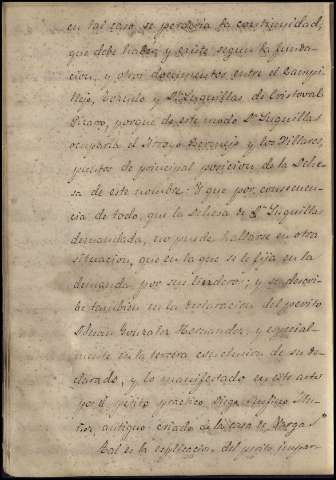 en tal caso se perderia la continuidad,
que debe haber y existe segun la funda-
cion, y otros documentos entre el Campi-
llejo, y Sn. Luguillas de Cristoval
Pizarro, porque de este modo Sn. Luguillas
ocuparia el Arroyo Bermejo y los Villares,
puntos de principal posicion de la Dehe-
sa de este nombre. Y que por consecuen-
cia de todo, que la Dehesa de Sn. Luguillas
demandada, no puede hallarse en otra
situacion, que en la que se le fija en la
demanda por sus linderos; y se descri-
be tambien en la declaracion del perito
Dn. Juan Gonzalez Hernandez, y especial-
mente en la tercera conclusion de su de-
clarado, y lo manifestado en este acto
por el perito practico, Diego Mu-
ñoz, antiguo criado de la casa de Vargas.
Tal es la esplicacion del perito impar-